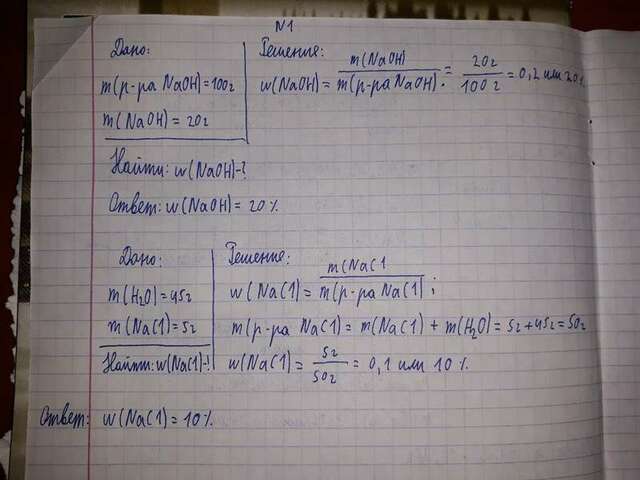 N1
Дано:
m(р-ра NaOH)=100г
m(NaOH)=20г
Найти: w(NaOH)-?
Решение:
w(NaOH)= m(NaOH) / m(р-ра NaOH). = 20г / 100г = 0,2 или 20%
Ответ: w(NaOH)=20%
Дано:
m(H₂O)=45г
m(NaCl)=5г
Найти: w(NaCl)-?
Решение:
w(NaCl)= m(NaCl / m(р-ра NaCl) ;
m(р-ра NaCl)=m(NaCl)+m(H₂O)=5г+45г=50г
w(NaCl)= 5г / 50г =0,1 или 10%
Ответ: w(NaCl)=10%